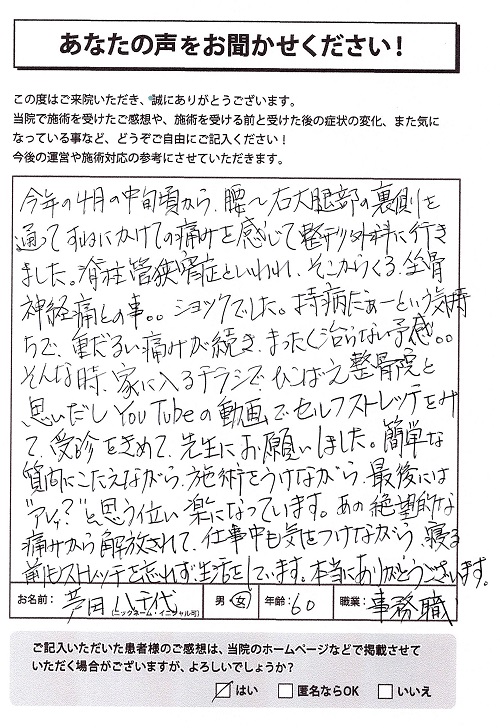 あなたの声をお聞かせください！
この度はご来院いただき、誠にありがとうございます。
当院で施術を受けたご感想や、施術を受ける前と受けた後の症状の変化、また気に
なっている事など、どうぞご自由にご記入ください！
今後の運営や施術対応の参考にさせていただきます。
今年の4月の中旬頃から、腰〜右大腿部の裏側を
通ってすねにかけての痛みを感じて整形外科に行き
ました。脊柱管狭窄症といわれ、そこからくる、坐骨
神経痛との事。。ショックでした。持病だぁーという気持
ちで、重だるい痛みが続き、まったく治らない予感。。
そんな時、家に入るチラシで、ひこばえ整骨院と
思いだし YouTubeの動画でセルフストレッチをみ
て、受診をきめて、先生にお願いしました。簡単な
質問にこたえながら、施術をうけながら、最後には
"アレ？"と思う位い楽になっています。あの絶望的な
痛みから解放されて、仕事中も気をつけながら、寝る
前もストレッチを忘れず生活をしています。本当にありがとうございます。
お名前： 芦田 八千代 男・女 年齢：60 職業：事務職
(ニックネーム・イニシャル可)
ご記入いただいた患者様のご感想は、当院のホームページなどで掲載させて
いただく場合がございますが、よろしいでしょうか？
はい 匿名ならOK いいえ